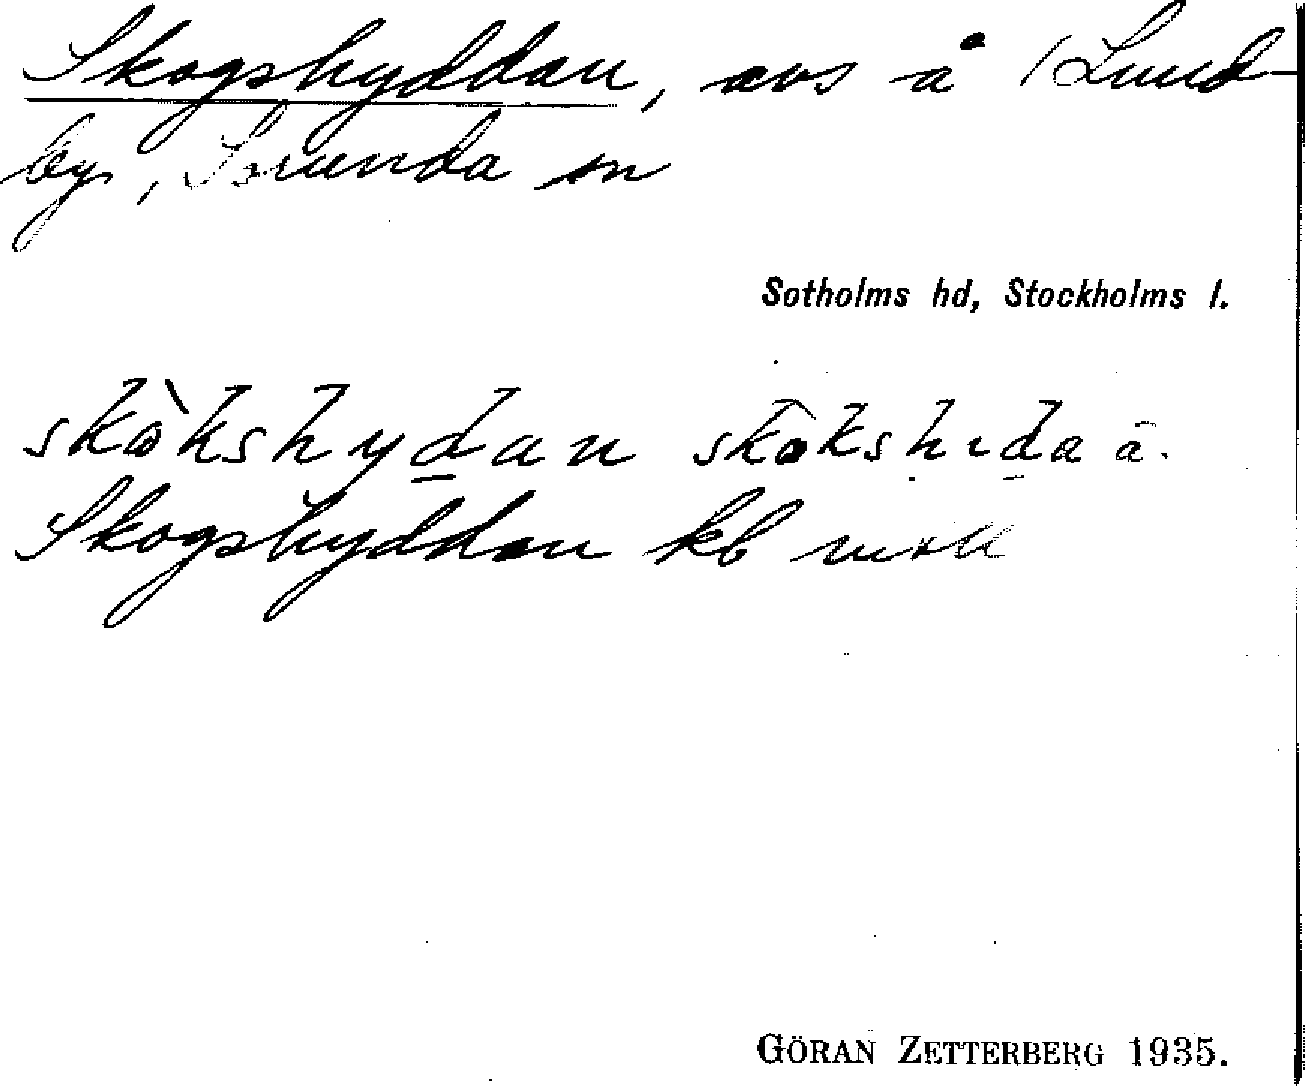 Skogshyddan, avs å 1 Lund-
by, Sorunda sn
Sotholms hd, Stockholms l.
skòkshydan skôkshıda ä.
Skogshyddan kb
GÖRAN ZETTERBERG 1935.